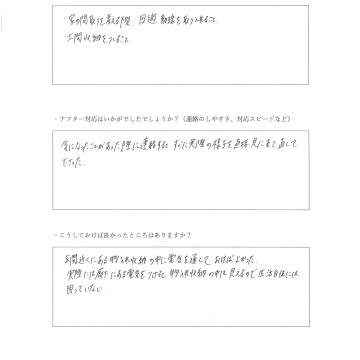 ・家の間取りを考える際、回遊動線を取り入れること
・土間収納をつくること
・アフター対応はいかがでしたでしょうか？（連絡のしやすさ、対応スピードなど）
気になったことがあった際に連絡すると、すぐに実際の様子を直接見に来て直して
下さった。
・こうしておけば良かったところはありますか？
玄関近くにある押入れ収納の中に電気を通しておけばよかった。
実際には廊下にある電気をつけると押入れ収納の中は見えるので生活自体には
困っていない